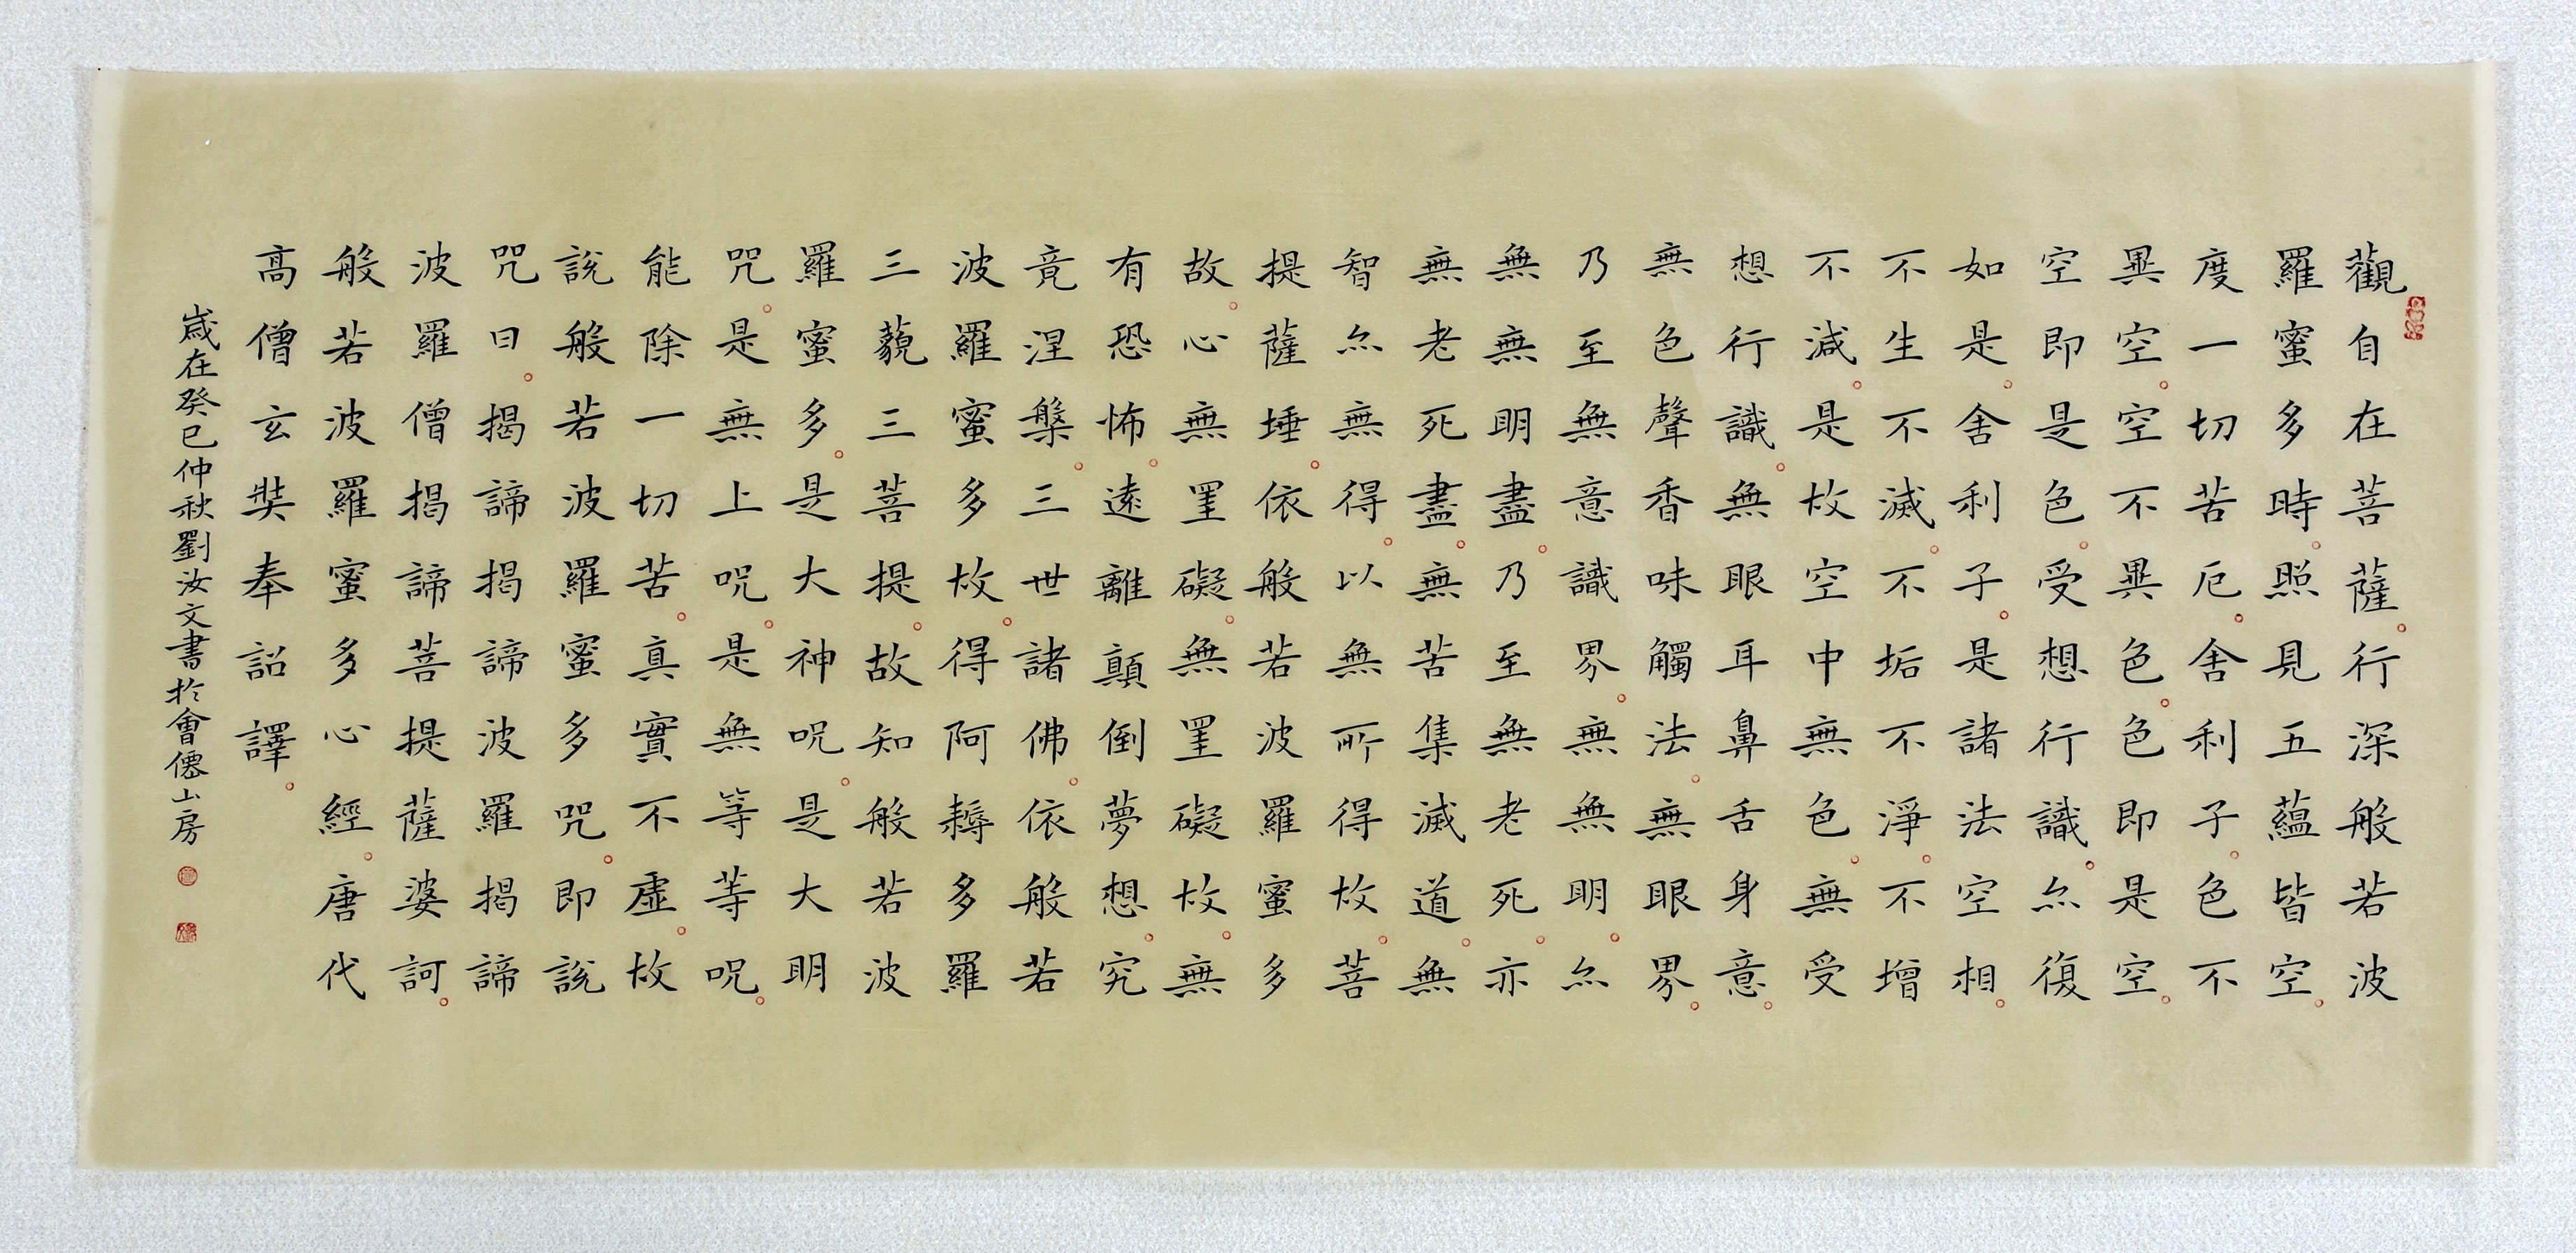 觀自在菩薩行深般若波
羅蜜多時照見五蘊皆空
度一切苦厄舍利子色不
異空空不異色色即是空
空即是色受想行識亦復
如是舍利子是諸法空相
不生不滅不垢不淨不增
不減是故空中無色無受
想行識無眼耳鼻舌身意
無色聲香味觸法無眼界
乃至無意識界無無明亦
無無明盡乃至無老死亦
無老死盡無苦集滅道無
智亦無得以無所得故菩
提薩埵依般若波羅蜜多
故心無罣礙無罣礙故無
有恐怖遠離顛倒夢想究
竟涅槃三世諸佛依般若
波羅蜜多故得阿耨多羅
三藐三菩提故知般若波
羅蜜多是大神咒是大明
咒是無上咒是無等等咒
能除一切苦真實不虛故
說般若波羅蜜多咒即說
咒曰揭諦揭諦波羅揭諦
波羅僧揭諦菩提薩婆訶
般若波羅蜜多心經唐代
高僧玄奘奉詔譯
歲在癸巳仲秋劉汝文書於會僊山房